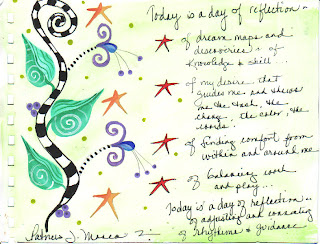 Today is a day of reflection ..
of dream maps and
discoveries .. of
knowledge & skill ...
of my desire .. that
guides me and shows
me the task, the
change .. the color, the
words.
of finding comfort from
within and around me
of balancing work
and play ...
Today is a day of reflection ..
of adjusting and
of rhythms & guidance
Patricia J. Mosca